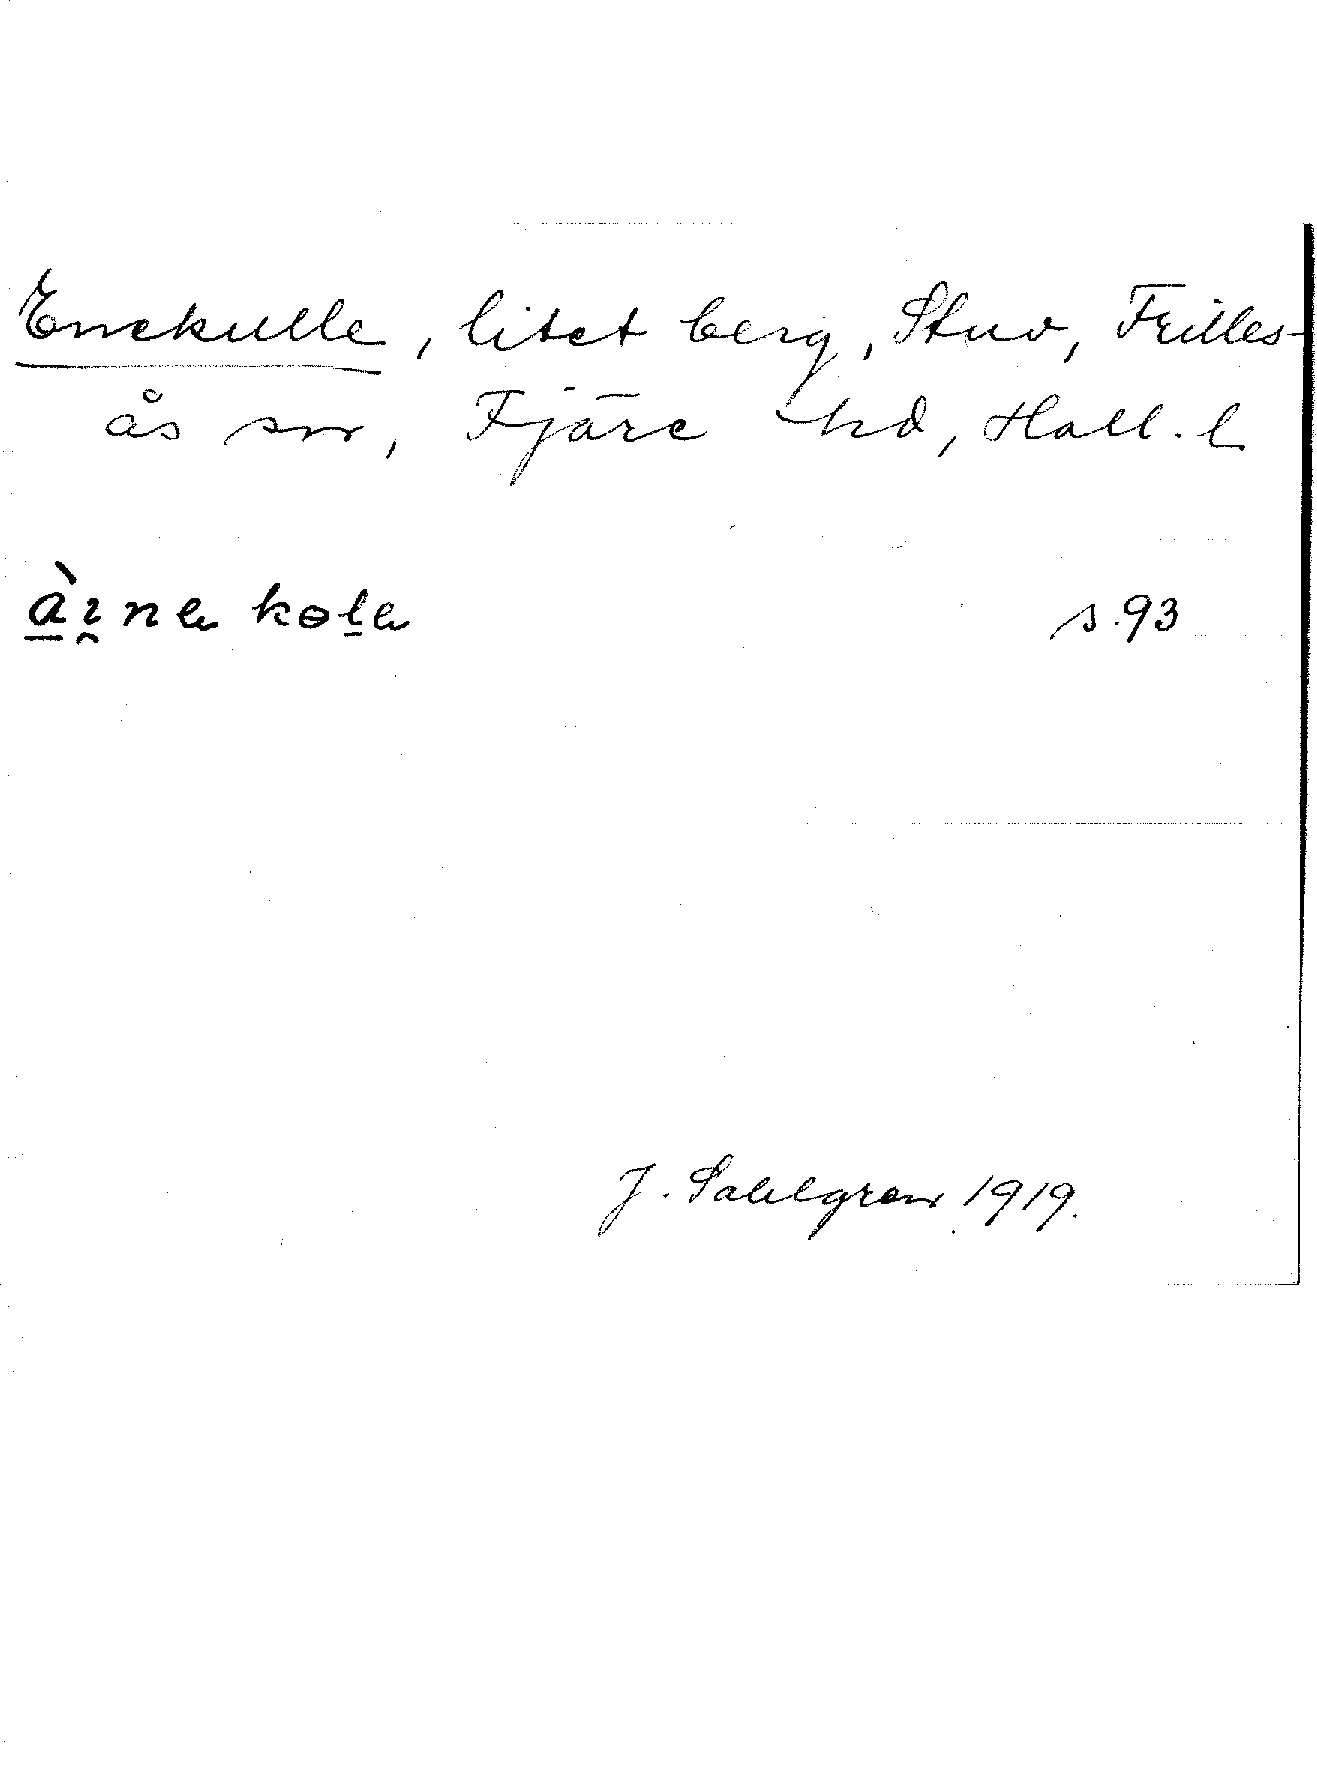 Enekulle, litet berg, Stuv, Frilles-
ås sn, Fjäre hd, Hall. l.
s. 93
J. Sahlgren 1919.